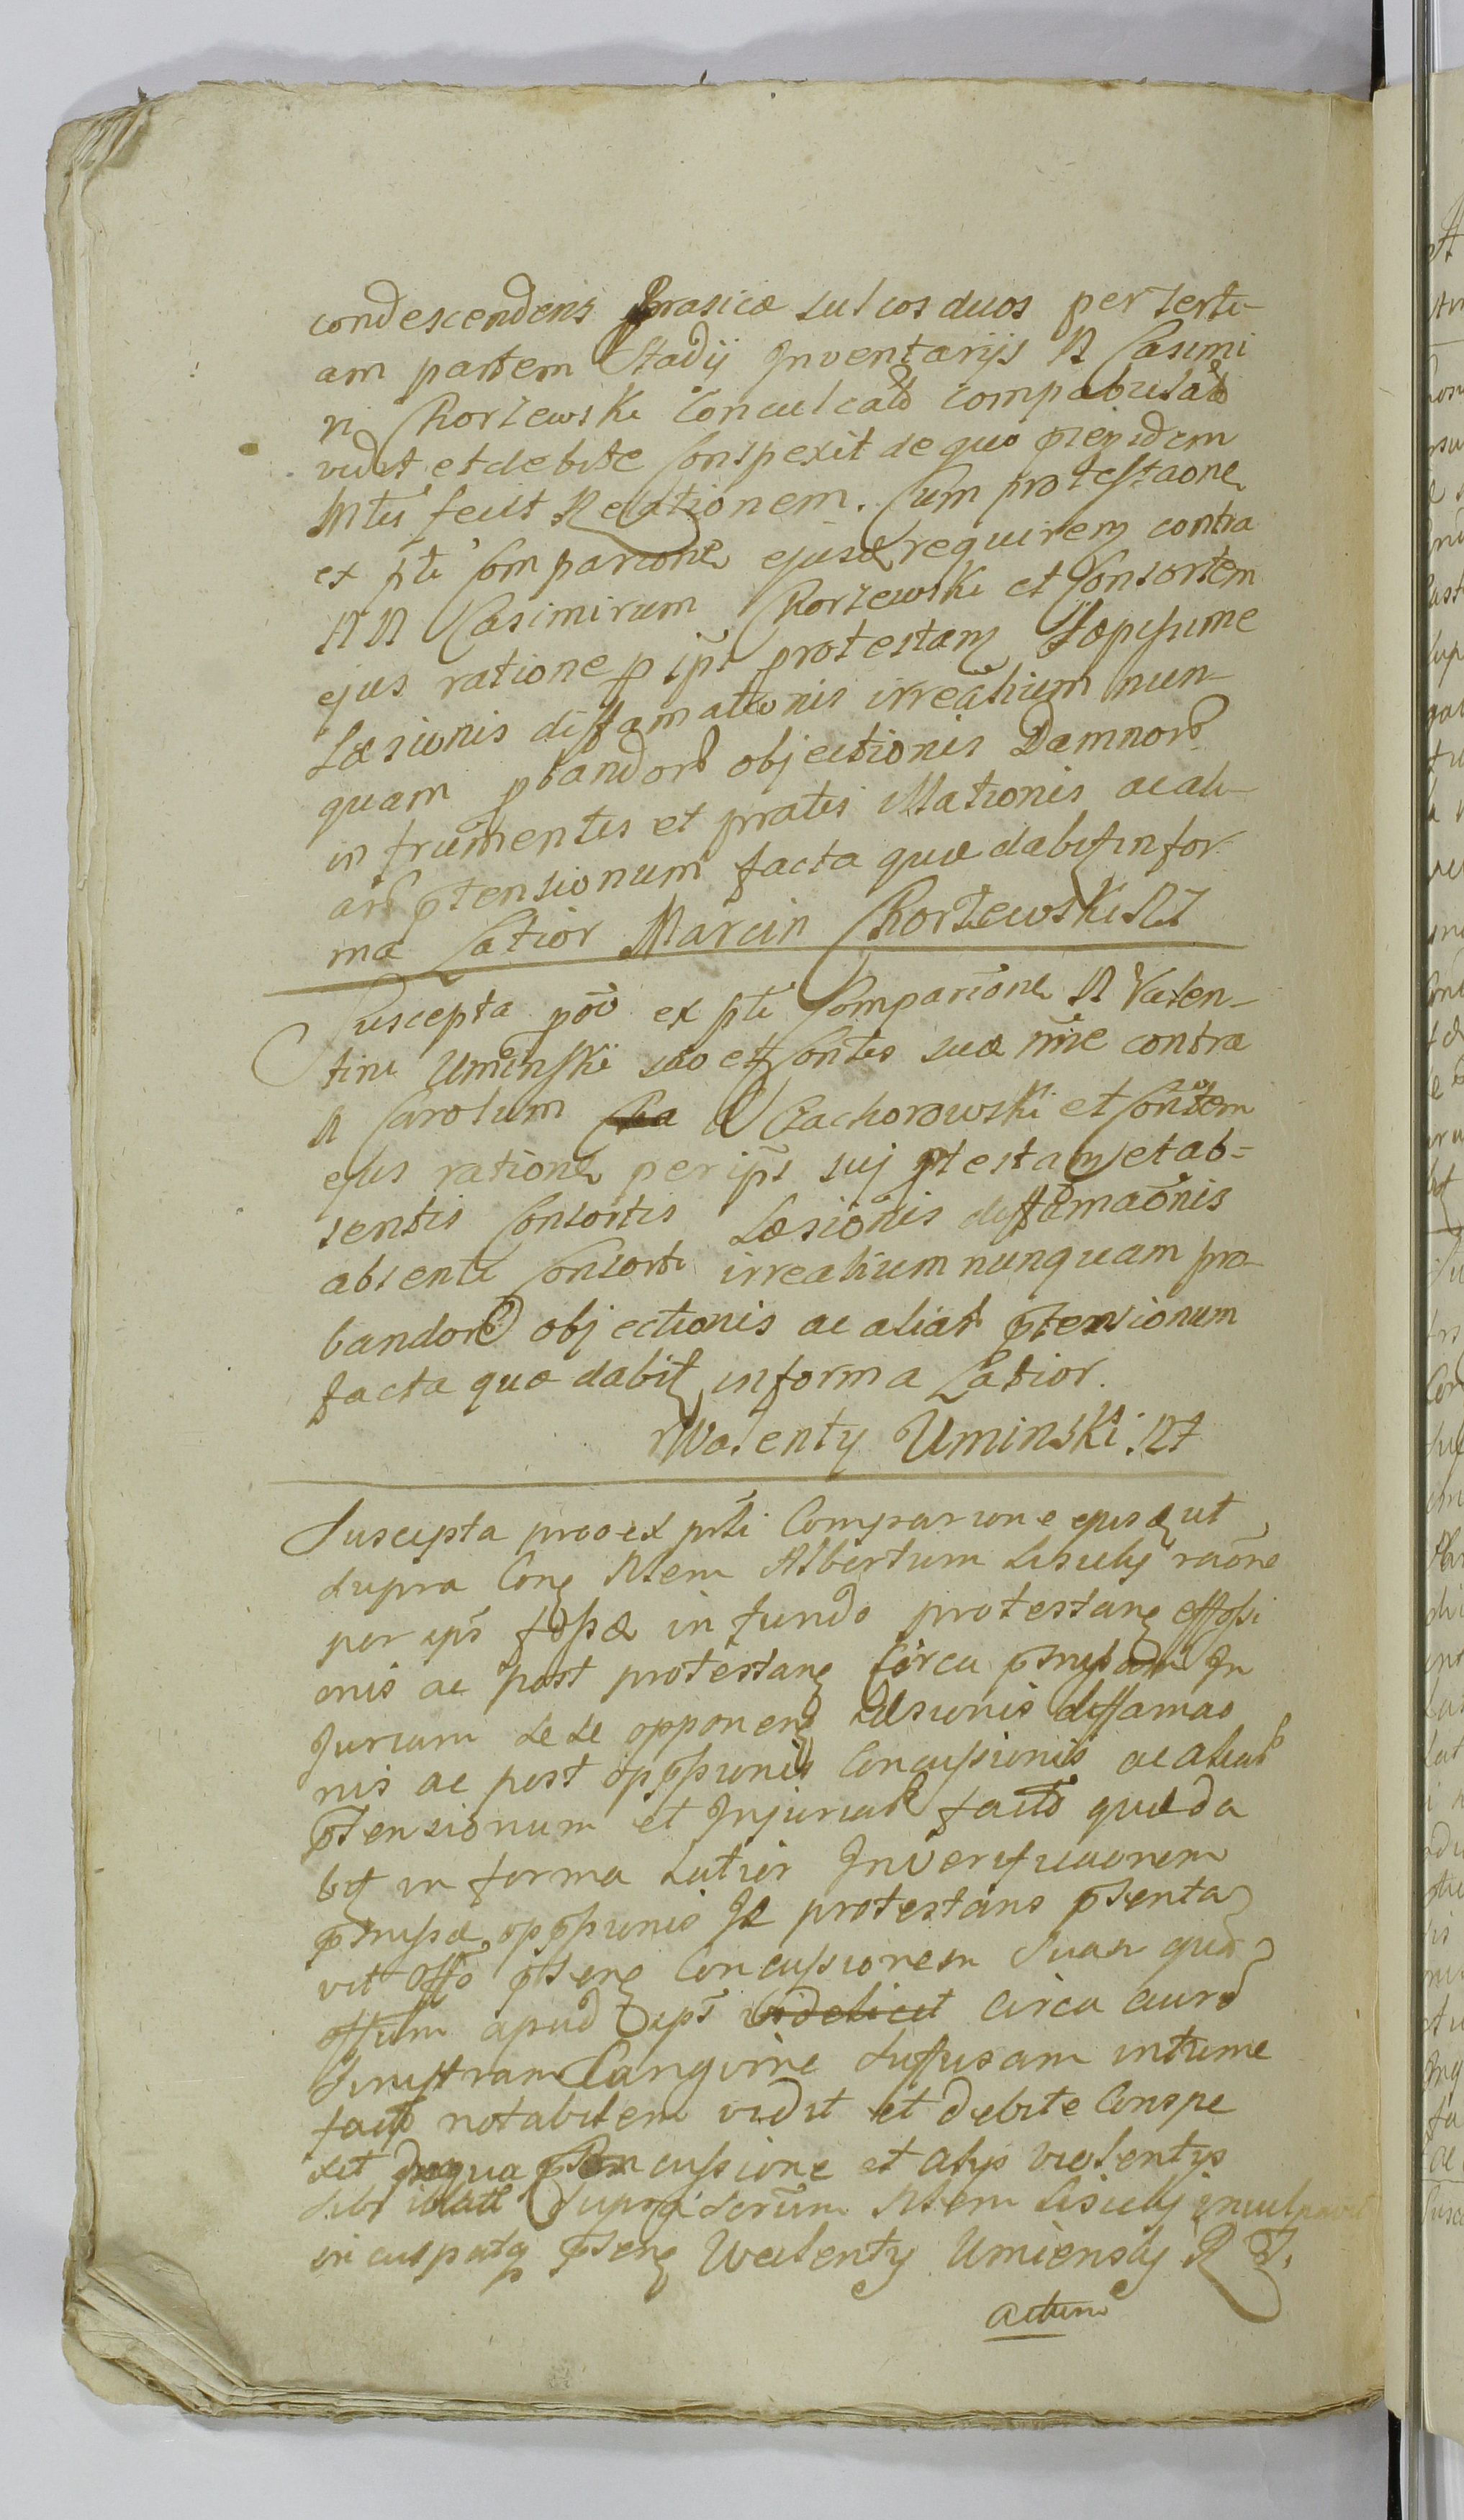 condescendens brasicæ sulcos duos per terti-
am partem Stadij Inventarijs N Casimi
ri Chorzewski Conculcatos compabulatos
vidit et debite Conspexit de quo idem
Mtus fecit Relationem. Cum protestaone
ex pti Comparione ejusd requiren contra
NN Casimirum Chorzewski et Consortem
ejus ratione p ips protestan Sæpissime
Læsionis diffamationis irrealium nun-
quam pbandor objectionis Damnor
in frumentis et pratis illationis ac ali-
ar ptensionum facta quæ dabit in for
ma Latior Marcin Chorzewski
Suscepta poo ex pti Comparione N Valen-
tini Uminski suo et Contis suæ nne contra
N Carolum Czachorowski et Contem
ejus ratione per ips sui ptestan et ab-
sentis Consortis Læsionis diffamaonis
absenti Consorti irrealium nunquam pro-
bandor objectionis ac aliar ptensionum
facta quæ dabit in forma Latior.
Walenty Uminski
Suscepta proo ex pti Comparione ejusd ut
supra Con Nlem Albertum Lisiecki raone
per ips fossæ in fundo protestan effossi
onis ac post protestan circa In
Juriam sese opponen Læsionis diffamao
nis ac post opposionis Concussionis ac aliar
ptensionum et Injuriar facta quæ da
bit in forma Latior In verificaonem
opposionis Is protestans psenta
vit Offo psen Concussionem Suam quam
offium apud ips videlicet circa aurem
Sinistram Sanguine suffusam intume
facto notabilem vidit et debite Conspe
xit de qua Concussione et alijs violentijs
sibi illatis Supra Nlem Lisiecki inculpavit
inculpatq psen Walenty Uminsky
actum